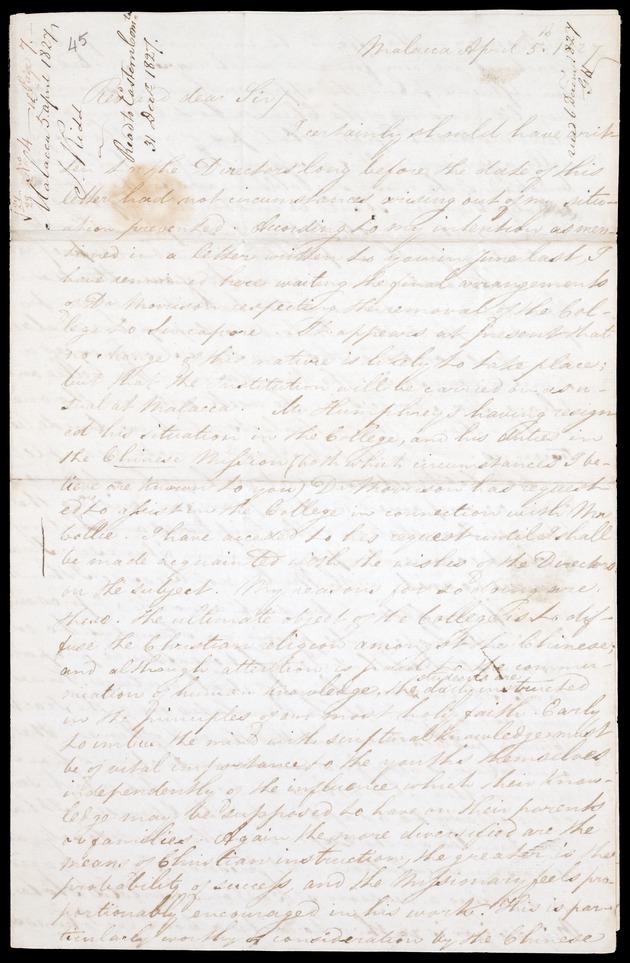 45
Malacca 5 April 1827
S Kidd
Read to Eastern Com.
31 Decr 1827.
Malacca April 5. 1827
Revd and dear Sir,
I certainly should have writ-
ten to the Directors long before the date of this
letter had not circumstances arising out of my situ-
ation prevented. According to my intention as men-
tioned in a letter written to you in June last I
have remained here waiting the final arrangements
of Dr Morrison respecting the removal of the Col-
lege to Sincapore. It appears at present that
no change of this nature is likely to take place;
but that the Institution will be carried on as u-
sual at Malacca. Mr Humphreys having resign
ed his situation in the College, and his duties in
the Chinese Mission (both which circumstances I be-
lieve are known to you) Dr Morrison has request-
ed me to assist in the College in connection with Mr
Collie. I have acceded to his request until I shall
be made acquainted with the wishes of the Directors
on the subject. My reasons for so doing are
these. The ultimate object of the College is to dif-
fuse the Christian religion amongst the Chinese;
and although attention is paid to the commu-
nication of human knowledge, the students are daily instructed
in the principles of our most holy faith. Early
to imbue the mind with scriptural knowledge must
be of vital importance to the youths themselves
independently of the influence which their know-
ledge may be supposed to have on their parents
or families. Again the more diversified are the
means of Christian instruction, the greater is the
probability of success, and the Missionary feels pro-
portionably encouraged in his work. This is par-
ticularly worthy of consideration by the Chinese